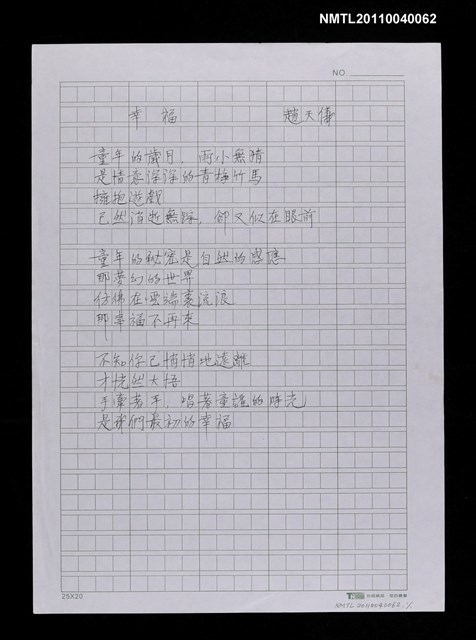 NMTL20110040062
NO.
幸福 趙天儀
童年的歲月，兩小無猜
是情意深深的青梅竹馬
擁抱遊戲
已然消逝無踪，卻又似在眼前
童年的秘密是自然的感應
那夢幻的世界
彷彿在雲端裏流浪
那幸福不再來
不知你已悄悄地遠離
才恍然大悟
手牽著手，唱著童謠的時光
是我們最初的幸福
25X20
NMTL20110040062